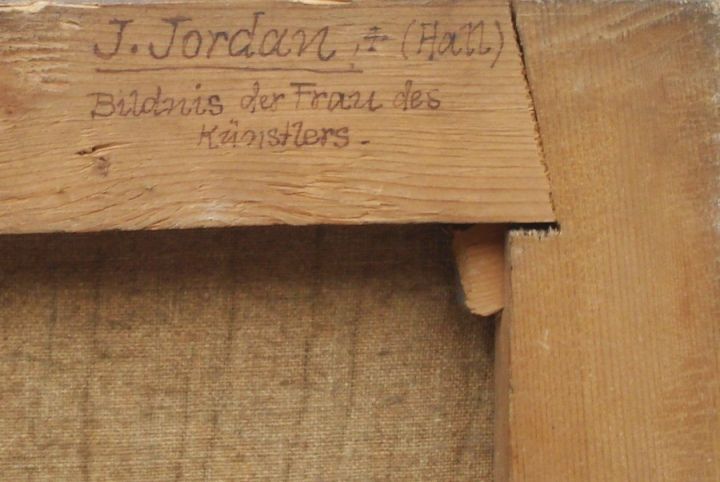 J. Jordan, ‡ (Hall)
Bildnis der Frau des
Künstlers.-